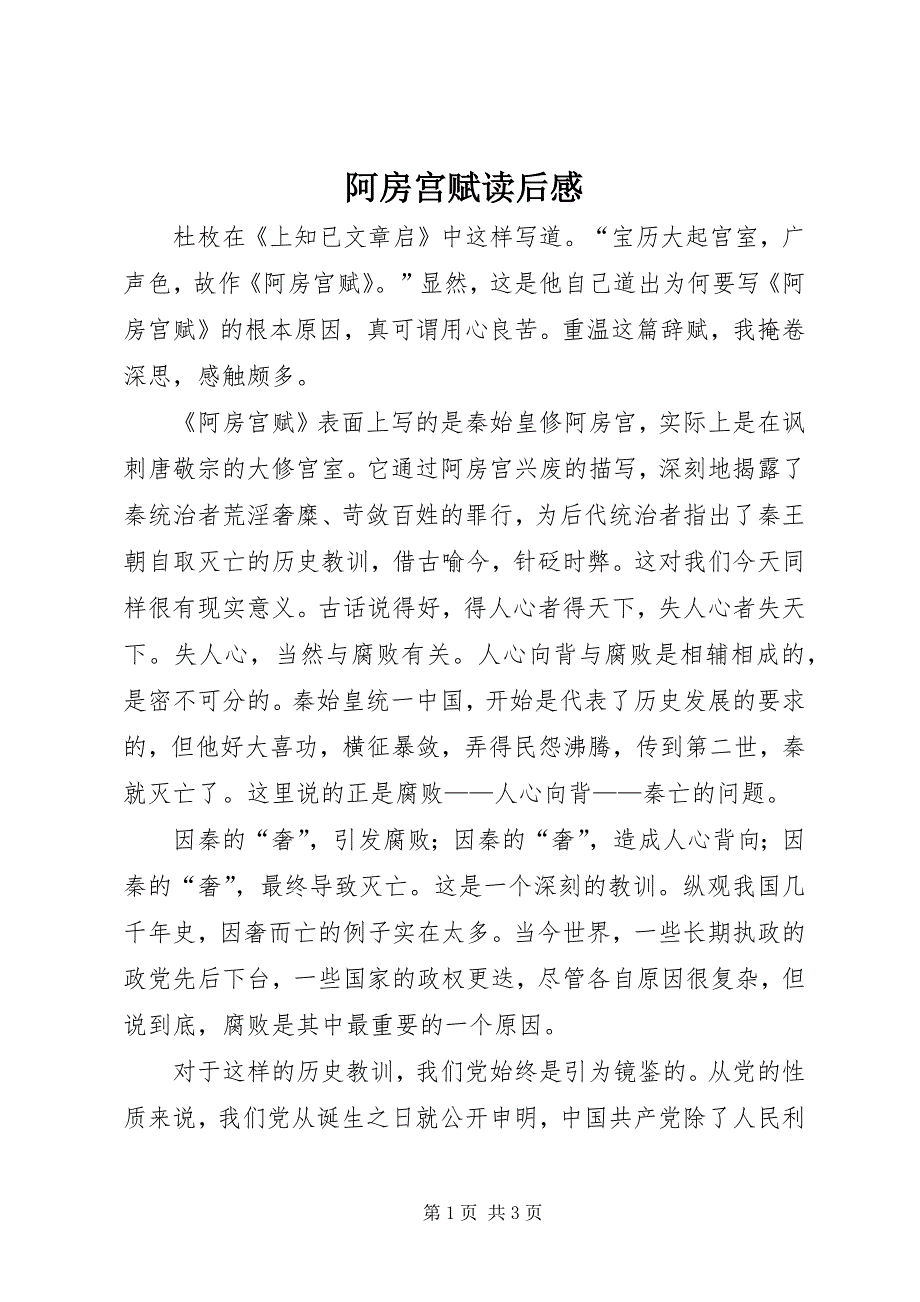 阿房宫赋读后感
杜枚在《上知已文章启》中这样写道。“宝历大起宫室，广
声色，故作《阿房宫赋》。”显然，这是他自己道出为何要写《阿
房宫赋》的根本原因，真可谓用心良苦。重温这篇辞赋，我掩卷
深思，感触颇多。
《阿房宫赋》表面上写的是秦始皇修阿房宫，实际上是在讽
刺唐敬宗的大修宫室。它通过阿房宫兴废的描写，深刻地揭露了
秦统治者荒淫奢糜、苛敛百姓的罪行，为后代统治者指出了秦王
朝自取灭亡的历史教训，借古喻今，针砭时弊。这对我们今天同
样很有现实意义。古话说得好，得人心者得天下，失人心者失天
下。失人心，当然与腐败有关。人心向背与腐败是相辅相成的，
是密不可分的。秦始皇统一中国，开始是代表了历史发展的要求
的，但他好大喜功，横征暴敛，弄得民怨沸腾，传到第二世，秦
就灭亡了。这里说的正是腐败——人心向背——秦亡的问题。
因秦的“奢”，引发腐败；因秦的“奢”，造成人心背向；因
秦的“奢”，最终导致灭亡。这是一个深刻的教训。纵观我国几
千年史，因奢而亡的例子实在太多。当今世界，一些长期执政的
政党先后下台，一些国家的政权更迭，尽管各自原因很复杂，但
说到底，腐败是其中最重要的一个原因。
对于这样的历史教训，我们党始终是引为镜鉴的。从党的性
质来说，我们党从诞生之日就公开申明，中国共产党除了人民利
第 1 页 共 3 页